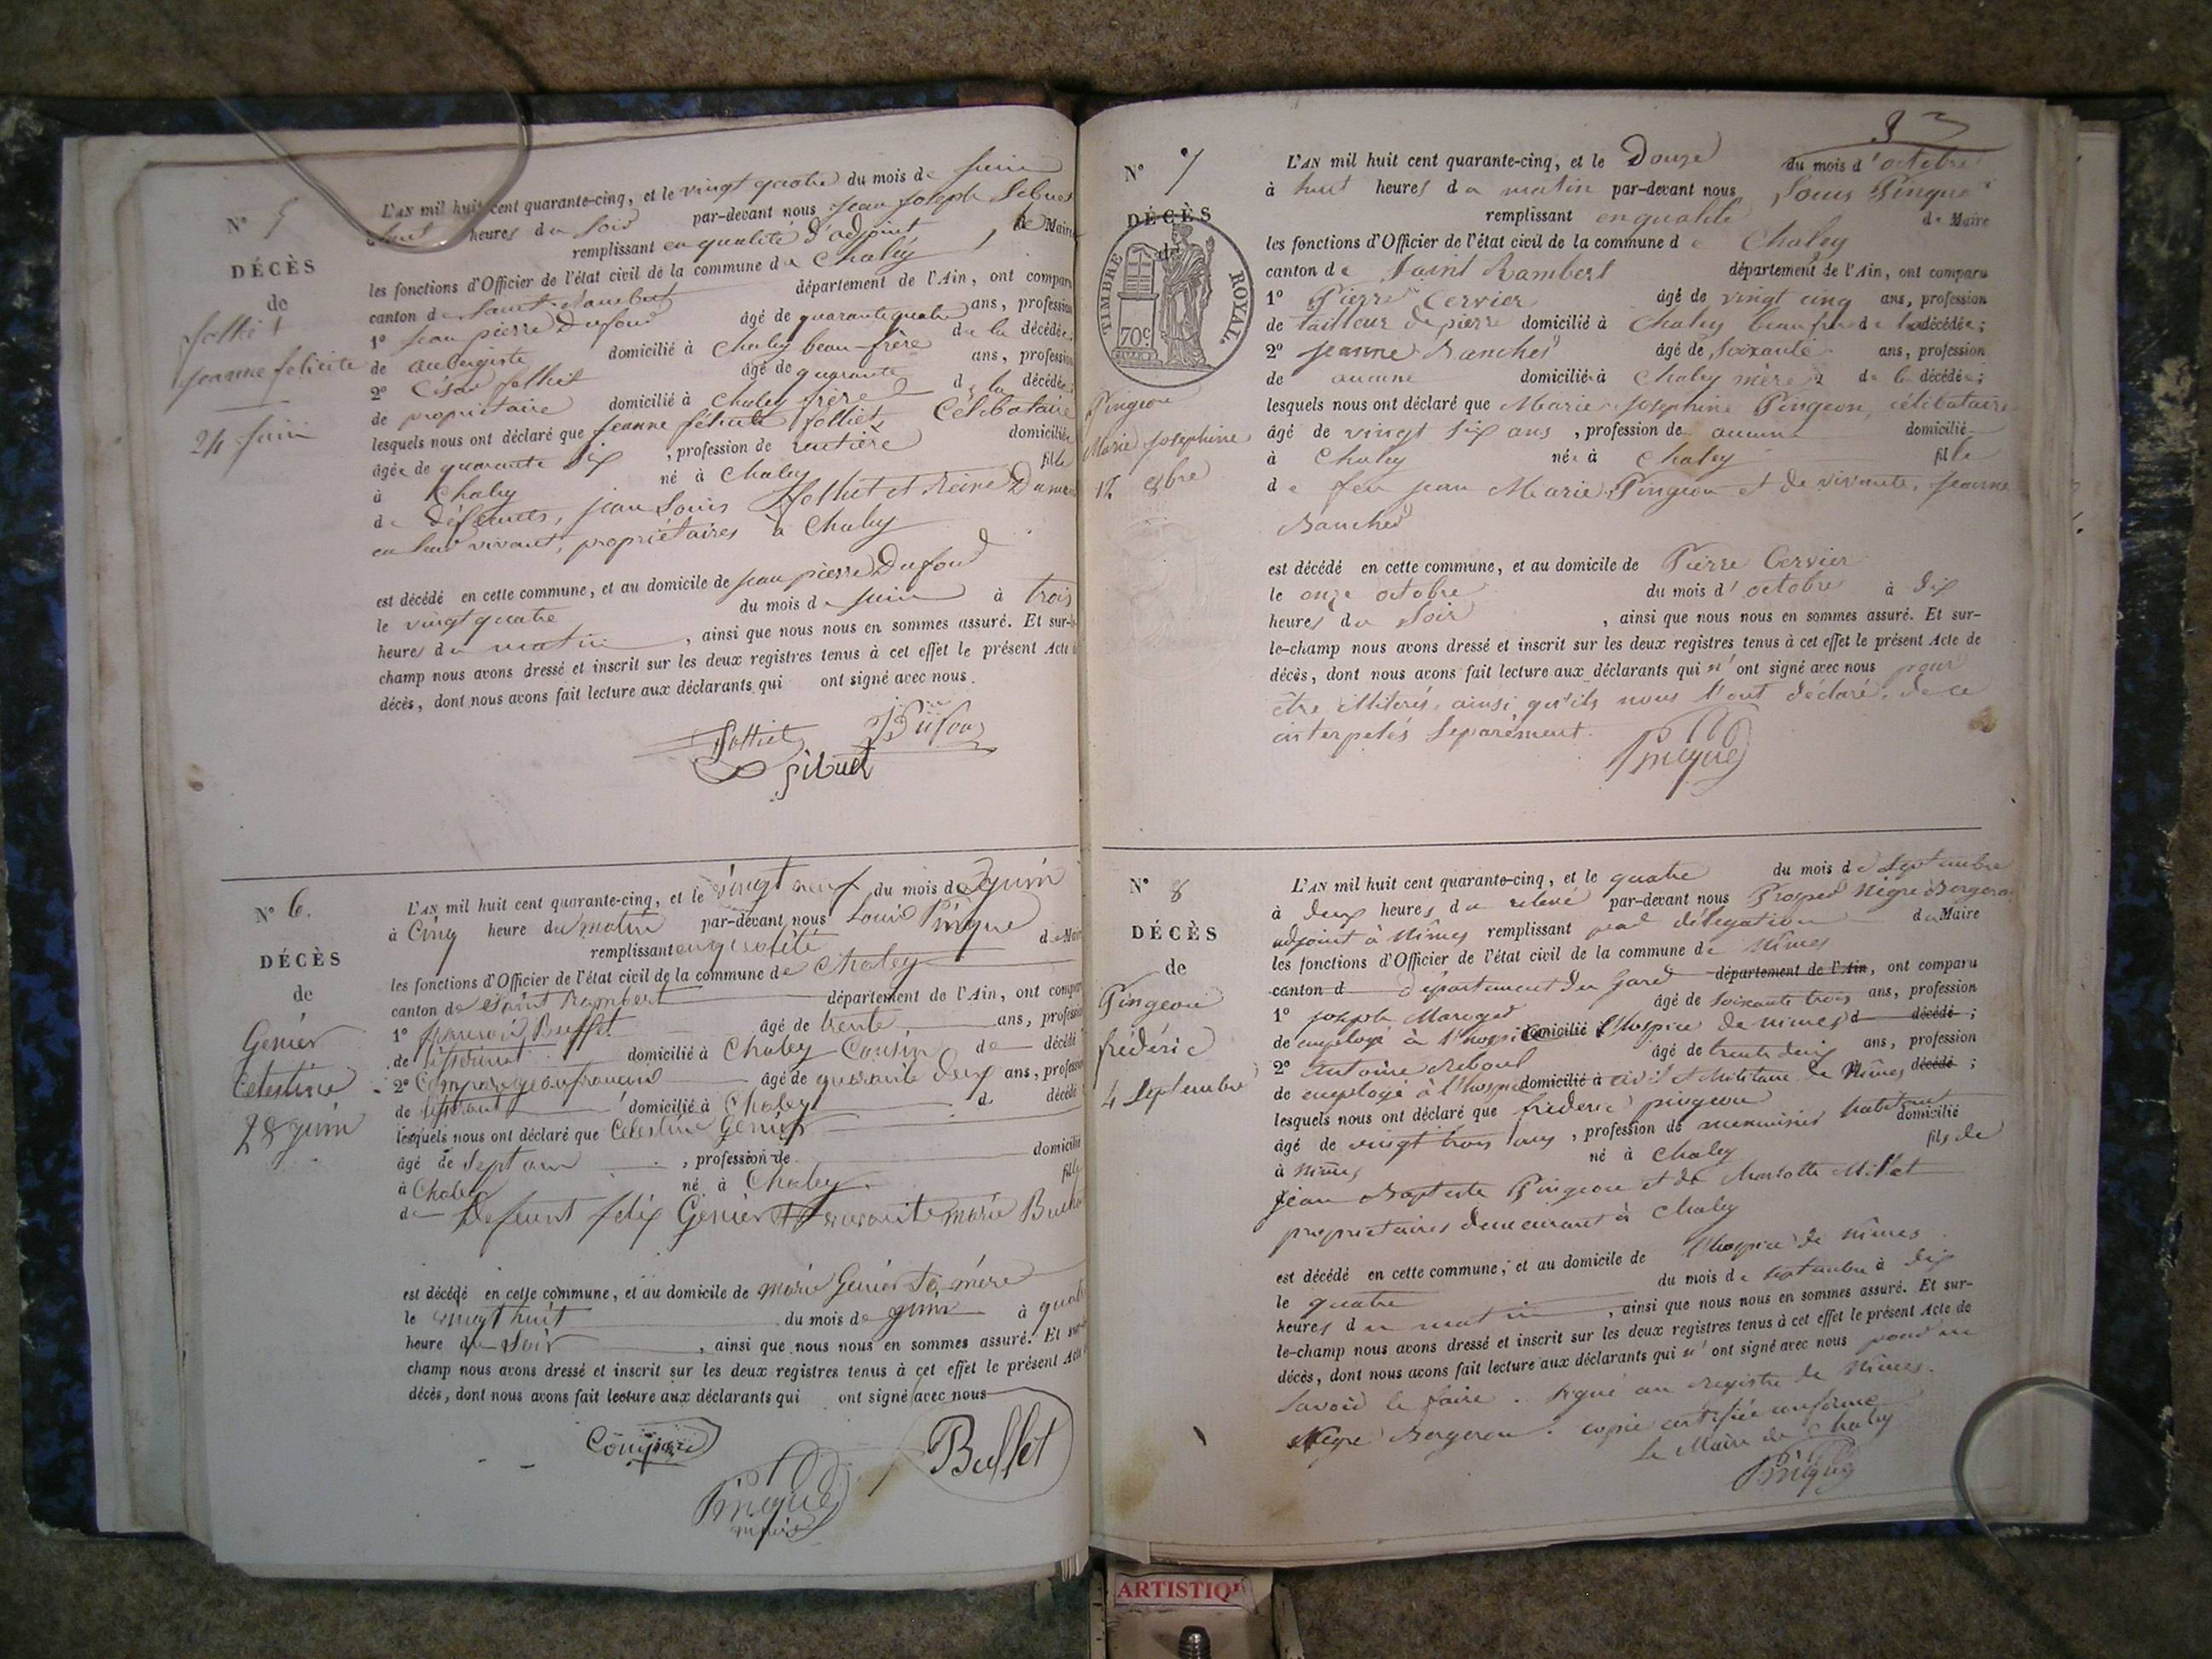 N° 5
DÉCÈS
de
folliet
jeanne felicite
24 juin
L'AN mil huit cent quarante-cinq, et le vingt quatre du mois de juin
heures du soir par-devant nous jean joseph
remplissant en qualité d'adjoint le Maire
les fonctions d'Officier de l'état civil de la commune de Chaley
canton de Saint-Rambert département de l'Ain, ont comparu
1° jean pierre Dufour âgé de quarante quatre ans, profession
de aubergiste domicilié à Chaley beau-frère de la décédée
2° César folliet âgé de quarante ans, profession
de propriétaire domicilié à Chaley frère de la décédée;
lesquels nous ont déclaré que jeanne félicité folliet, Célibataire
âgée de quarante six , profession de rentière domiciliée
à Chaley né à Chaley fille
de défunts, jean Louis folliet et Reine
en leur vivant, propriétaires à Chaley
est décédé en cette commune, et au domicile de jean pierre Dufour
le vingt quatre du mois de juin à trois
heures du matin , ainsi que nous nous en sommes assuré. Et sur-le-
champ nous avons dressé et inscrit sur les deux registres tenus à cet effet le présent Acte
décès, dont nous avons fait lecture aux déclarants qui ont signé avec nous.
folliet Dufour
N° 6.
DÉCÈS
de
Genier
Celestine
28 juin
L'AN mil huit cent quarante-cinq, et le vingt neuf du mois de juin
à Cinq heure du matin par-devant nous Louis Pingue
remplissant en qualité de Maire
les fonctions d'Officier de l'état civil de la commune de Chaley
canton de Saint Rambert département de l'Ain, ont comparu
1° françois Buffet âgé de trente ans, profession
de tisserant domicilié à Chaley Cousin de décédé
2° françois âgé de quarante deux ans, profession
de tisserant domicilié à Chaley d décédé
lesquels nous ont déclaré que Celestine Genier
âgé de Sept ans , profession de domicilié
à Chaley né à Chaley fille
de Defunt felix Genier et vivante marie
est décédé en cette commune, et au domicile de marie Genier sa mère
le vingt huit du mois de juin à quatre
heure du soir , ainsi que nous nous en sommes assuré. Et sur-le-
champ nous avons dressé et inscrit sur les deux registres tenus à cet effet le présent Acte
décès, dont nous avons fait lecture aux déclarants qui ont signé avec nous
Buffet
Pingue
maire
N° 7
DÉCÈS
de
TIMBRE ROYAL.
70c
Pingeon
Marie Josephine
12 8bre
L'AN mil huit cent quarante-cinq, et le Douze du mois d'octobre
à huit heures du matin par-devant nous Louis Pingue
remplissant en qualité de Maire
les fonctions d'Officier de l'état civil de la commune de Chaley
canton de Saint Rambert département de l'Ain, ont comparu
1° Pierre Cervier âgé de vingt cinq ans, profession
de tailleur de pierre domicilié à Chaley beau frère de la décédée;
2° jeanne Ranched âgé de Soixante ans, profession
de aucune domiciliée à Chaley mère de la décédée;
lesquels nous ont déclaré que Marie Josephine Pingeon, célibataire
âgé de vingt six ans , profession de aucune domicilié
à Chaley née à Chaley fille
de feu jean Marie Pingeon et de vivante, jeanne
Ranched
est décédé en cette commune, et au domicile de Pierre Cervier
le onze octobre du mois d'octobre à dix
heures du soir , ainsi que nous nous en sommes assuré. Et sur-
le-champ nous avons dressé et inscrit sur les deux registres tenus à cet effet le présent Acte de
décès, dont nous avons fait lecture aux déclarants qui n'ont signé avec nous pour
être illiterés, ainsi qu'ils nous l'ont déclaré, de ce
interpelés Séparément.
Pingue
N° 8
DÉCÈS
de
Pingeon
frédéric
4 Septembre
L'AN mil huit cent quarante-cinq, et le quatre du mois de Septembre
à deux heures du relevé par-devant nous Prosper Nègre Bergeron
adjoint à Nîmes remplissant par délégation du Maire
les fonctions d'Officier de l'état civil de la commune de Nîmes
canton d département du Gard département de l'Ain, ont comparu
1° joseph âgé de soixante trois ans, profession
de employé à l'hospice domicilié à l'hospice de nimes d décédé ;
2° Antoine Reboul âgé de trente deux ans, profession
de employé à l'hospice domicilié à civil et Militaire de Nîmes décédé ;
lesquels nous ont déclaré que frédéric pingeon
âgé de vingt trois ans , profession de menuisier habitant domicilié
à Nimes né à Chaley fils de
Jean Baptiste Pingeon et de Charlotte Millet
propriétaires demeurant à Chaley
est décédé en cette commune, et au domicile de l'hospice de Nimes
le quatre du mois de septembre à dix
heures du matin , ainsi que nous nous en sommes assuré. Et sur-
le-champ nous avons dressé et inscrit sur les deux registres tenus à cet effet le présent Acte de
décès, dont nous avons fait lecture aux déclarants qui n'ont signé avec nous pour ne
savoir le faire. signé au registre de Nîmes.
Nègre Bergeron. copie certifiée conforme
Le Maire de Chaley
Pingue
ARTISTIQ